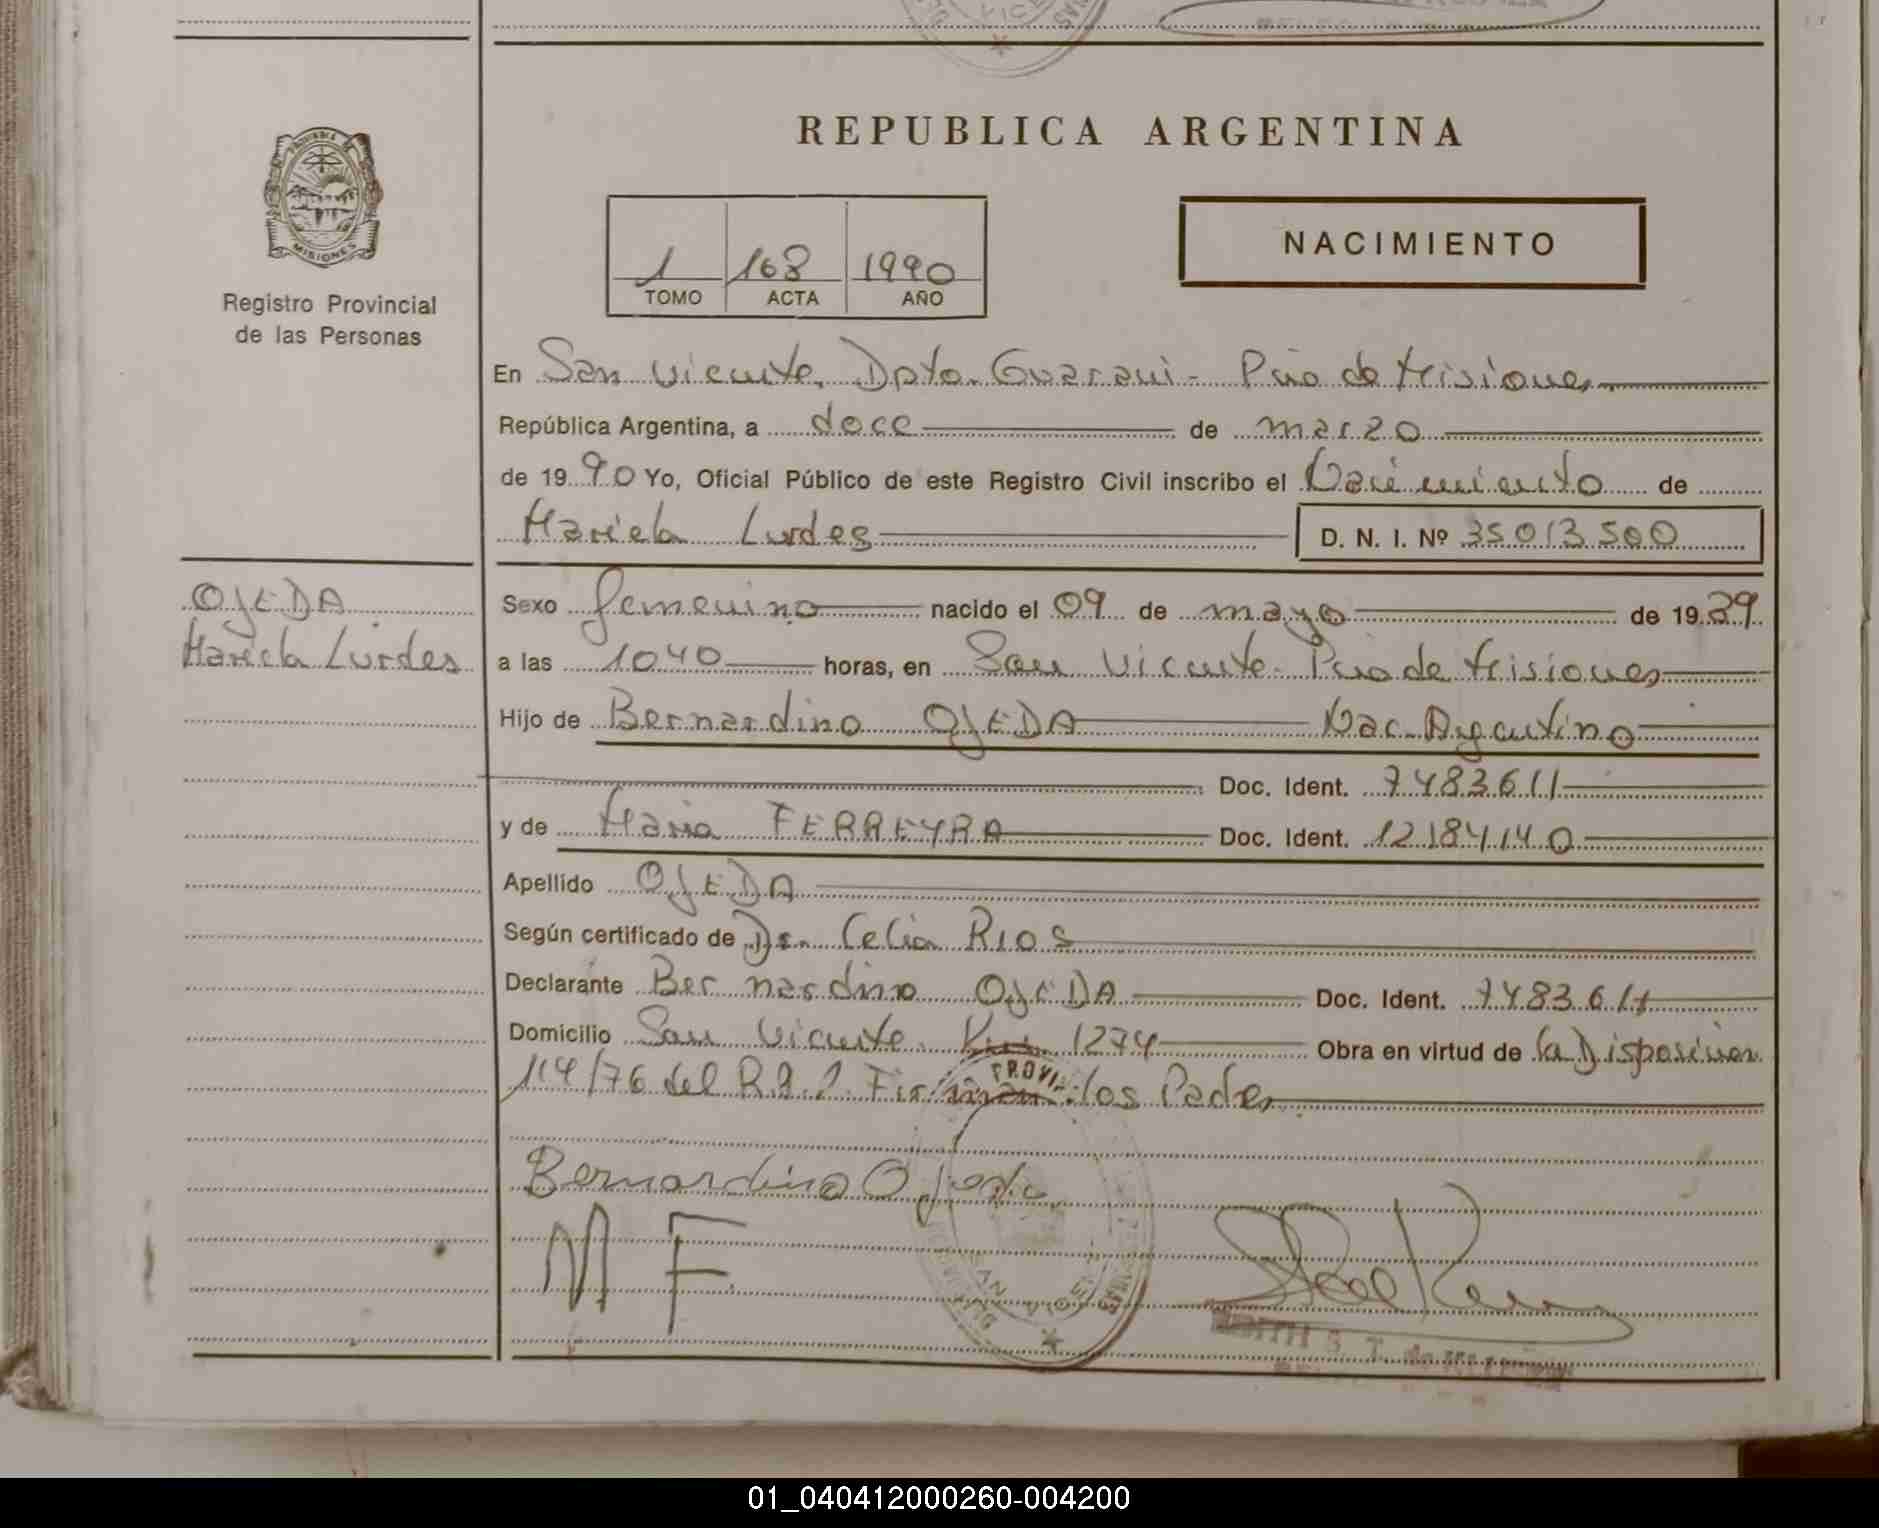 REPUBLICA ARGENTINA
PROVINCIA DE
MISIONES
Registro Provincial
de las Personas
1 168 1990
TOMO ACTA AÑO
NACIMIENTO
En San Vicente, Dpto. Guarani - Pcia de Misiones
República Argentina, a doce de marzo
de 1990 Yo, Oficial Público de este Registro Civil inscribo el Nacimiento de
Mariela Lurdes D. N. I. Nº 35013500
OJEDA
Mariela Lurdes
Sexo femenino nacido el 09 de mayo de 1989
a las 1040 horas, en San Vicente - Pcia de Misiones
Hijo de Bernardino OJEDA Nac. Argentino
Doc. Ident. 7483611
y de Maria FERREYRA Doc. Ident. 12184140
Apellido OJEDA
Según certificado de Dra. Celia RIOS
Declarante Bernardino OJEDA Doc. Ident. 7483611
Domicilio San Vicente 1274 Obra en virtud de la Disposicion
114/76 del R.P.P. Firman los Padres
Bernardino Ojeda
M F.
PROVI
SAN VICENTE
EDITH S. T. de
01_040412000260-004200